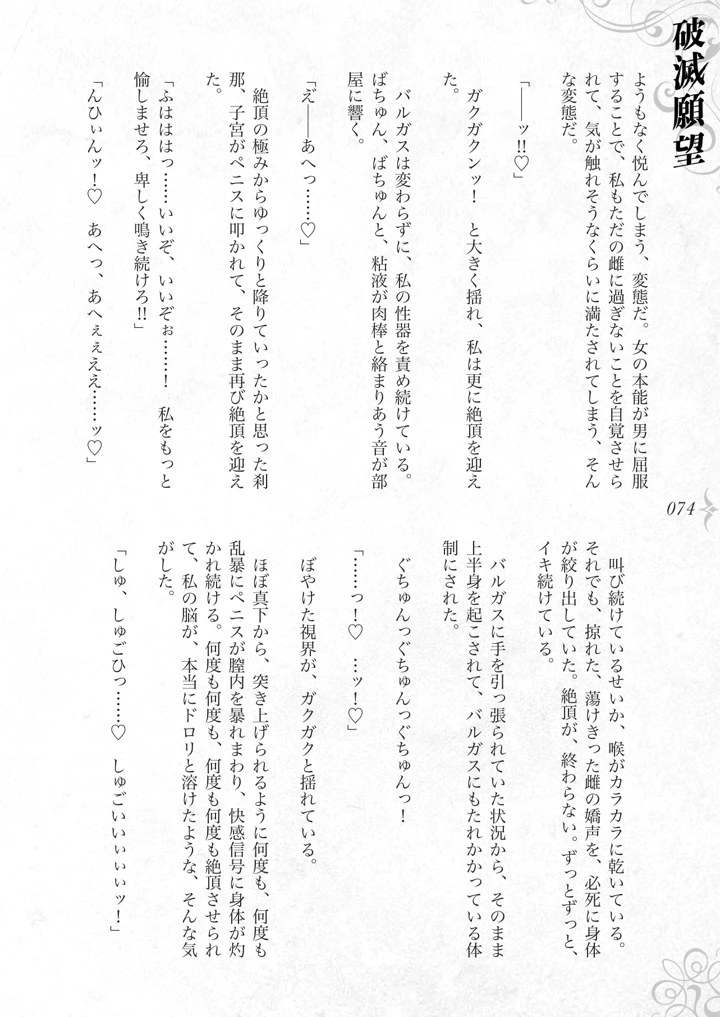 破滅願望
ようもなく悦んでしまう、変態だ。女の本能が男に屈服
することで、私もただの雌に過ぎないことを自覚させら
れて、気が触れそうなくらいに満たされてしまう、そん
な変態だ。
「――ッ!!♡」
ガクガクンッ！　と大きく揺れ、私は更に絶頂を迎え
た。
バルガスは変わらずに、私の性器を責め続けている。
ばちゅん、ばちゅんと、粘液が肉棒と絡まりあう音が部
屋に響く。
「え゛――あへっ……♡」
絶頂の極みからゆっくりと降りていったかと思った刹
那、子宮がペニスに叩かれて、そのまま再び絶頂を迎え
た。
「ふはははっ……いいぞ、いいぞぉ……！　私をもっと
愉しませろ、卑しく鳴き続けろ!!」
「んひぃんッ！♡　あへっ、あへぇぇええ……ッ♡」
074
叫び続けているせいか、喉がカラカラに乾いている。
それでも、掠れた、蕩けきった雌の嬌声を、必死に身体
が絞り出していた。絶頂が、終わらない。ずっとずっと、
イキ続けている。
バルガスに手を引っ張られていた状況から、そのまま
上半身を起こされて、バルガスにもたれかかっている体
制にされた。
ぐちゅんっぐちゅんっぐちゅんっ！
「……っ！♡　…ッ！♡」
ぼやけた視界が、ガクガクと揺れている。
ほぼ真下から、突き上げられるように何度も、何度も
乱暴にペニスが膣内を暴れまわり、快感信号に身体が灼
かれ続ける。何度も何度も、何度も何度も絶頂させられ
て、私の脳が、本当にドロリと溶けたような、そんな気
がした。
「しゅ、しゅごひっ……♡　しゅごいいぃぃぃッ！」